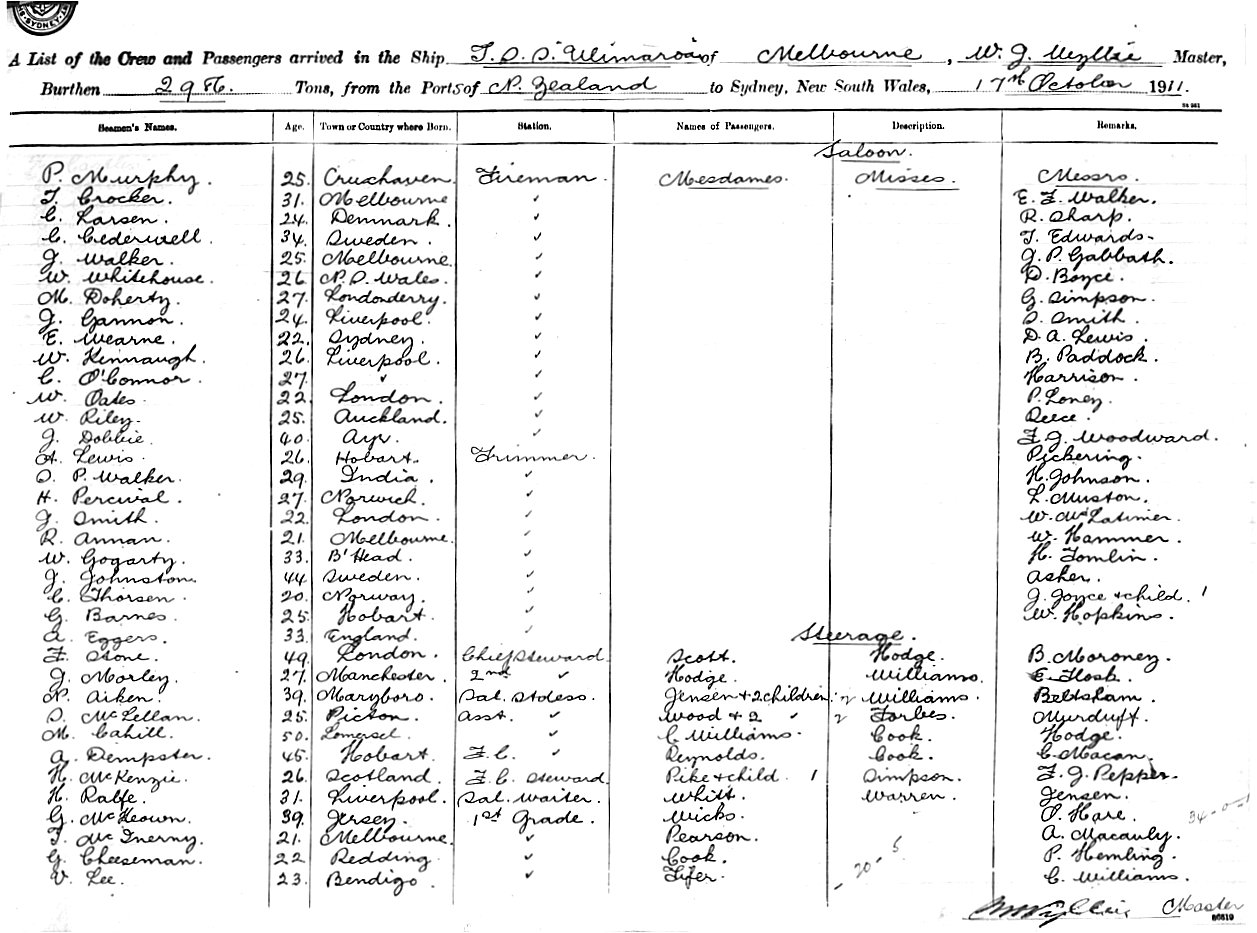 SYDNEY
A List of the Crew and Passengers arrived in the Ship T.S.S. Ulimaroa of Melbourne, W. J. Wyllie Master,
Burthen 2986. Tons, from the Ports of N. Zealand to Sydney, New South Wales, 17th October 1911.
Seamen's Names. Age. Town or Country where Born. Station. Names of Passengers. Description. Remarks.
Saloon.
P. Murphy. 25. Cruxhaven. Fireman. Mesdames. Misses. Messrs.
T. Crocker. 31. Melbourne ✓ E. F. Walker.
C. Larsen. 24. Denmark. ✓ R. Sharp.
C. Cederwell. 34. Sweden. ✓ T. Edwards.
J. Walker. 25. Melbourne. ✓ J. P. Gabbath.
W. Whitehouse. 26. N. S. Wales. ✓ D. Boyce.
M. Doherty. 27. Londonderry. ✓ G. Simpson.
J. Gannon. 24. Liverpool. ✓ S. Smith.
E. Wearne. 22. Sydney. ✓ D. A. Lewis.
W. Kinnaugh. 26. Liverpool. ✓ B. Paddock.
C. O'Connor. 27. ✓ ✓ Harrison.
W. Oates. 22. London. ✓ P. Loney.
W. Riley. 25. Auckland. ✓ Reece.
J. Dobbie. 40. Ayr. ✓ F. J. Woodward.
A. Lewis. 26. Hobart. Trimmer. Pickering.
S. P. Walker. 29. India. ✓ H. Johnson.
H. Percival. 27. Norwich. ✓ L. Muston.
J. Smith. 22. London. ✓ W. McLatimer.
R. Annan. 21. Melbourne. ✓ W. Hammer.
W. Gogarty. 33. B'Head. ✓ H. Tomlin.
J. Johnston. 44. Sweden. ✓ Asher.
C. Thorsen. 20. Norway. ✓ J. Joyce + child. 1
G. Barnes. 25. Hobart. ✓ W. Hopkins.
A. Eggers. 33. England. ✓ Steerage.
F. Stone. 49. London. Chief Steward. Scott. Hodge. B. Moroney.
J. Morley. 27. Manchester. 2nd ✓ Hodge. Williams. E. Flosk.
N. Aiken. 39. Maryboro. Sal. Stdess. Jensen + 2 children. 2 Williams. Beltsham.
S. McLellan. 25. Picton. Asst. ✓ Wood + 2 ✓ 2 Forbes. Murduft.
M. Cahill. 50. Somerset. ✓ C. Williams. Cook. Hodge.
A. Dempster. 45. Hobart. F.C. ✓ Reynolds. Cook. C. Macan.
H. McKenzie. 26. Scotland. F.C. Steward. Pike + child. 1 Simpson. F. J. Pepper.
H. Ralfe. 31. Liverpool. Sal. Waiter. Whitt. Warren. Jensen.
G. McKeown. 39. Jersey. 1st Grade. Wicks. O. Hare. 34-0-1
T. McInerny. 21. Melbourne. ✓ Pearson. A. Macauly.
G. Cheeseman. 22 Redding. ✓ Cook. P. Hemling.
V. Lee. 23. Bendigo. ✓ Fifer. - 20 - 5 C. Williams.
W J Wyllie Master